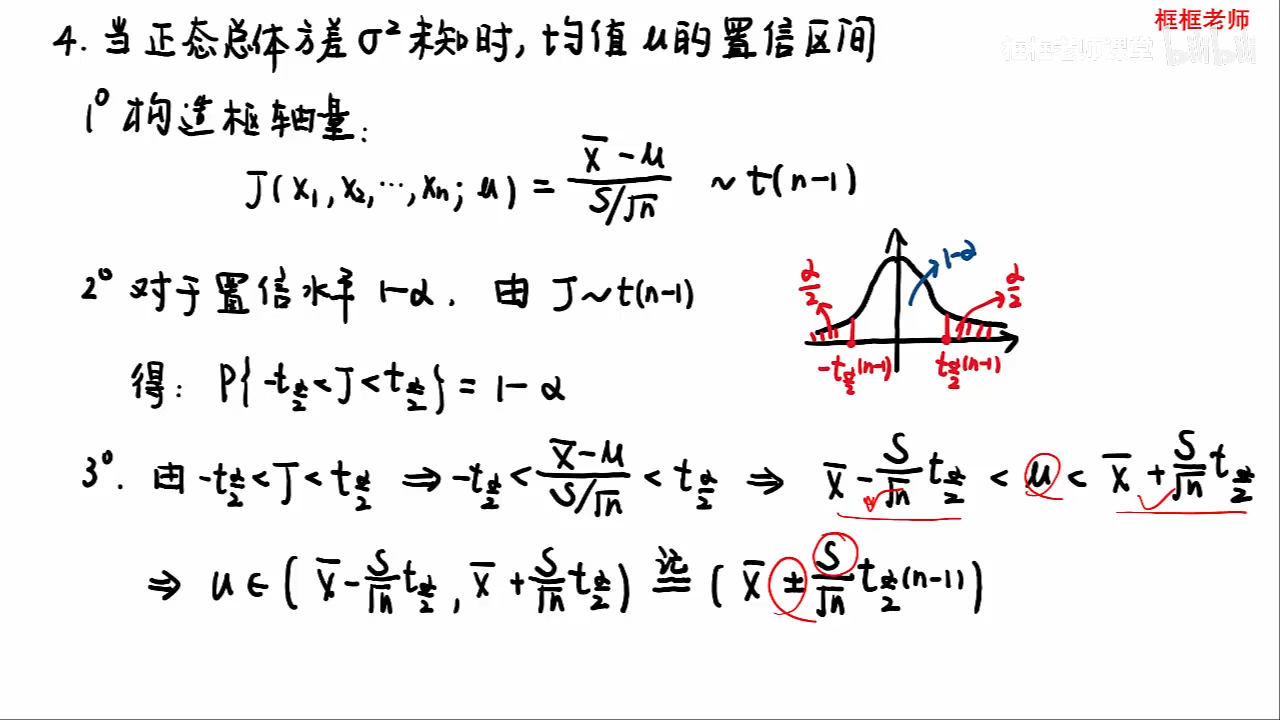 框框老师
框框老师课堂 bilibili
4. 当正态总体方差 σ² 未知时, 均值 μ 的置信区间
1° 构造枢轴量:
J(x₁, x₂, ⋯, xₙ; μ) = (x̄ - μ)/(S/√n) ~ t(n-1)
2° 对于置信水平 1-α. 由 J~t(n-1)
α/2 1-α α/2
-t_{α/2}(n-1) t_{α/2}(n-1)
得: P{-t_{α/2} < J < t_{α/2}} = 1-α
3°. 由 -t_{α/2} < J < t_{α/2} ⇒ -t_{α/2} < (x̄-μ)/(S/√n) < t_{α/2} ⇒ x̄ - S/√n t_{α/2} < μ < x̄ + S/√n t_{α/2}
⇒ μ ∈ (x̄ - S/√n t_{α/2}, x̄ + S/√n t_{α/2}) 记 = (x̄ ± S/√n t_{α/2}(n-1))